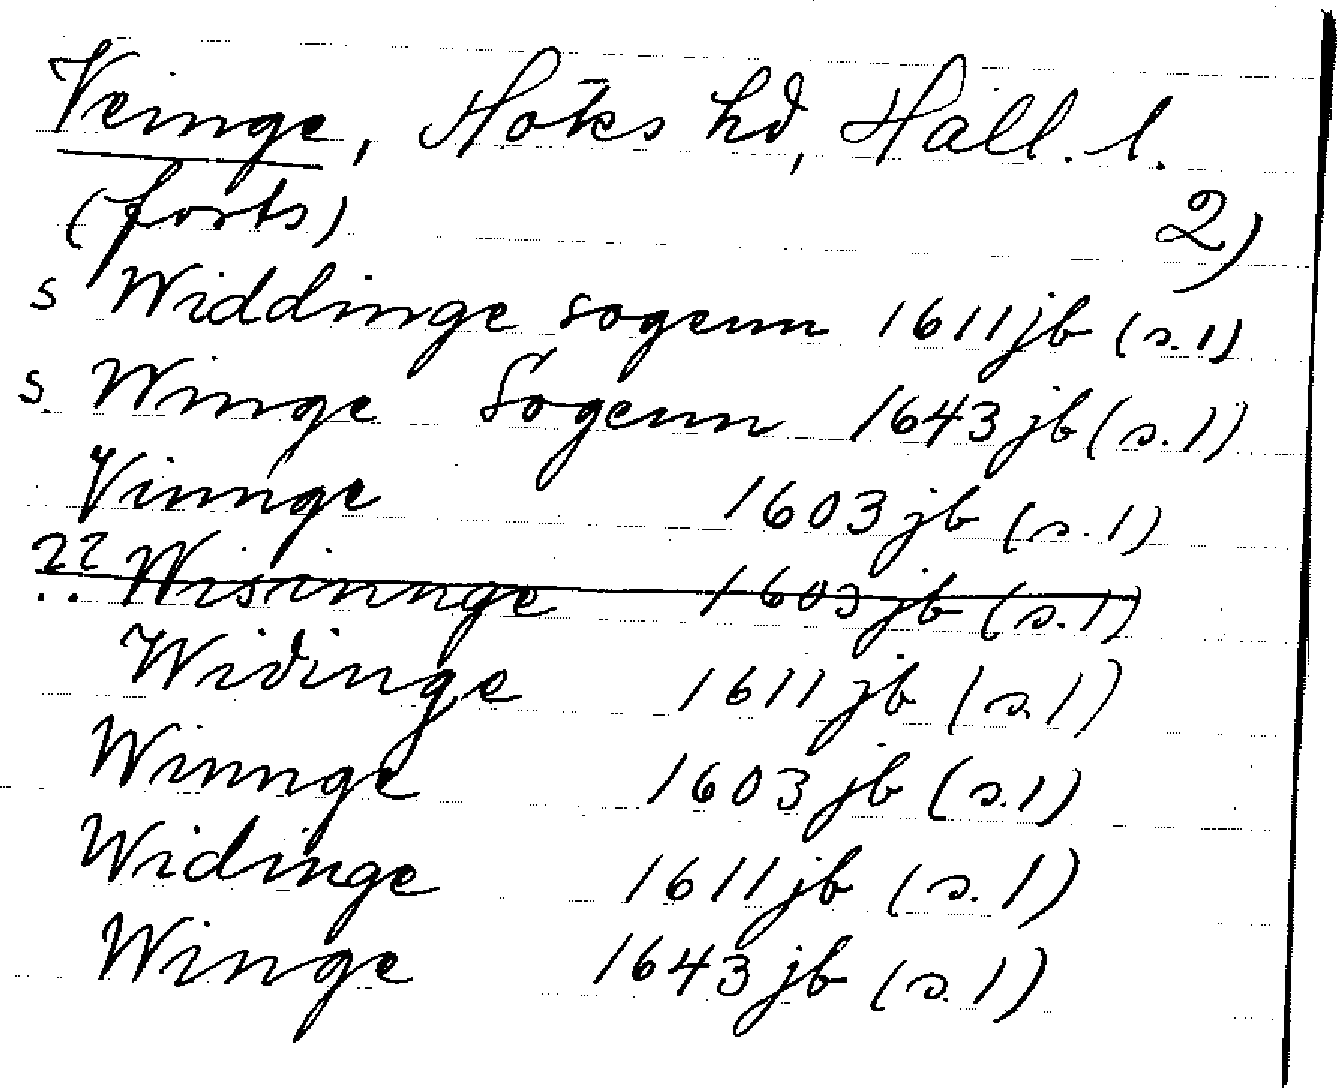 Veinge, Höks hd, Hall. l.
(forts) 2)
s Widdinge sogenn 1611 jb (s.1)
s. Winge Sogenn 1643 jb (s.1)
Vinnge 1603 jb (s.1)
?? Wisinnge 1603 jb (s.1)
Widinge 1611 jb (s.1)
Winnge 1603 jb (s.1)
Widinge 1611 jb (s.1)
Winge 1643 jb (s.1)